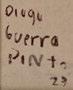 Diogo
Guerra
Pinto
23